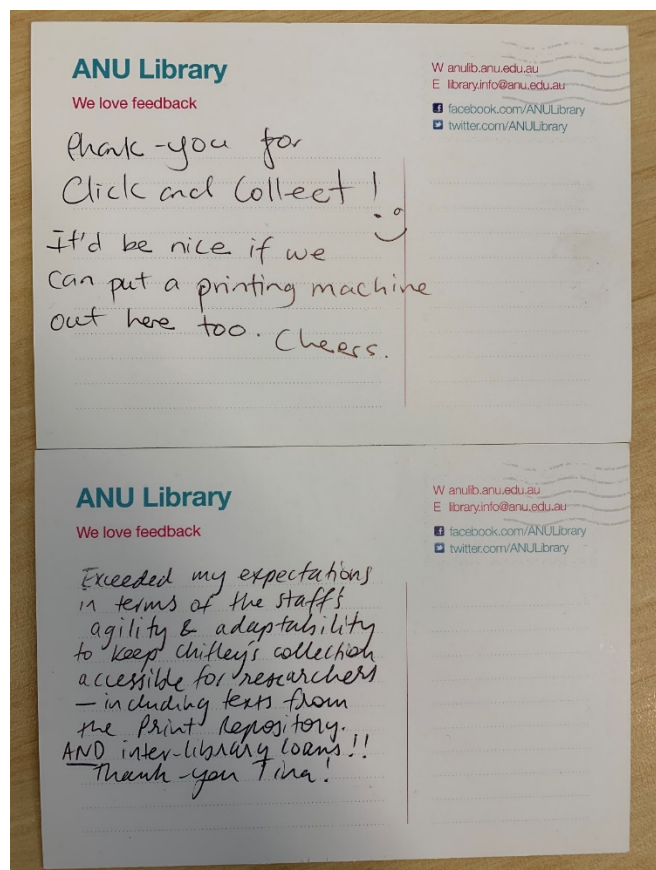 ANU Library
We love feedback
W anulib.anu.edu.au
E library.info@anu.edu.au
facebook.com/ANULibrary
twitter.com/ANULibrary
Thank-you for
Click and Collect!
It'd be nice if we
can put a printing machine
out here too. Cheers.
ANU Library
We love feedback
W anulib.anu.edu.au
E library.info@anu.edu.au
facebook.com/ANULibrary
twitter.com/ANULibrary
Exceeded my expectations
in terms of the staff's
agility & adaptability
to keep Chifley's collection
accessible for researchers
– including texts from
the Print Repository.
AND inter-library loans!!
Thank-you Tina!